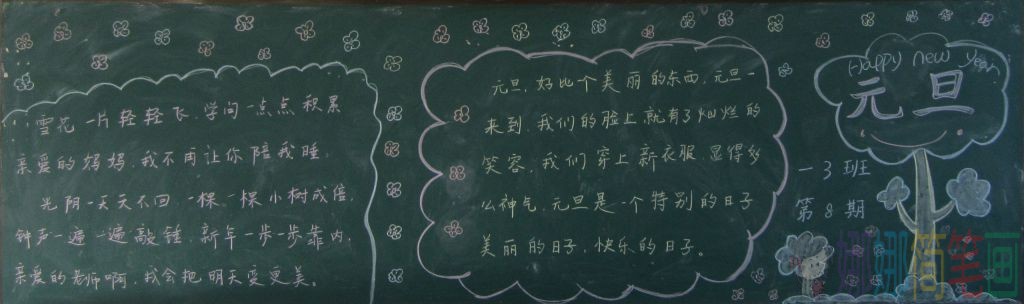 雪花一片轻轻飞,学问一点点积累
亲爱的妈妈,我不再让你陪我睡.
光阴一天天不回,一棵一棵小树成倍,
钟声一遍一遍敲锤,新年一步一步靠内,
亲爱的老师啊,我会把明天变更美。
元旦,好比个美丽的东西,元旦一
来到,我们的脸上,就有了灿烂的
笑容,我们穿上新衣服,显得多
么神气,元旦是一个特别的日子
美丽的日子,快乐的日子。
Happy new year
元旦
一3班
第8期
娜娜简笔画